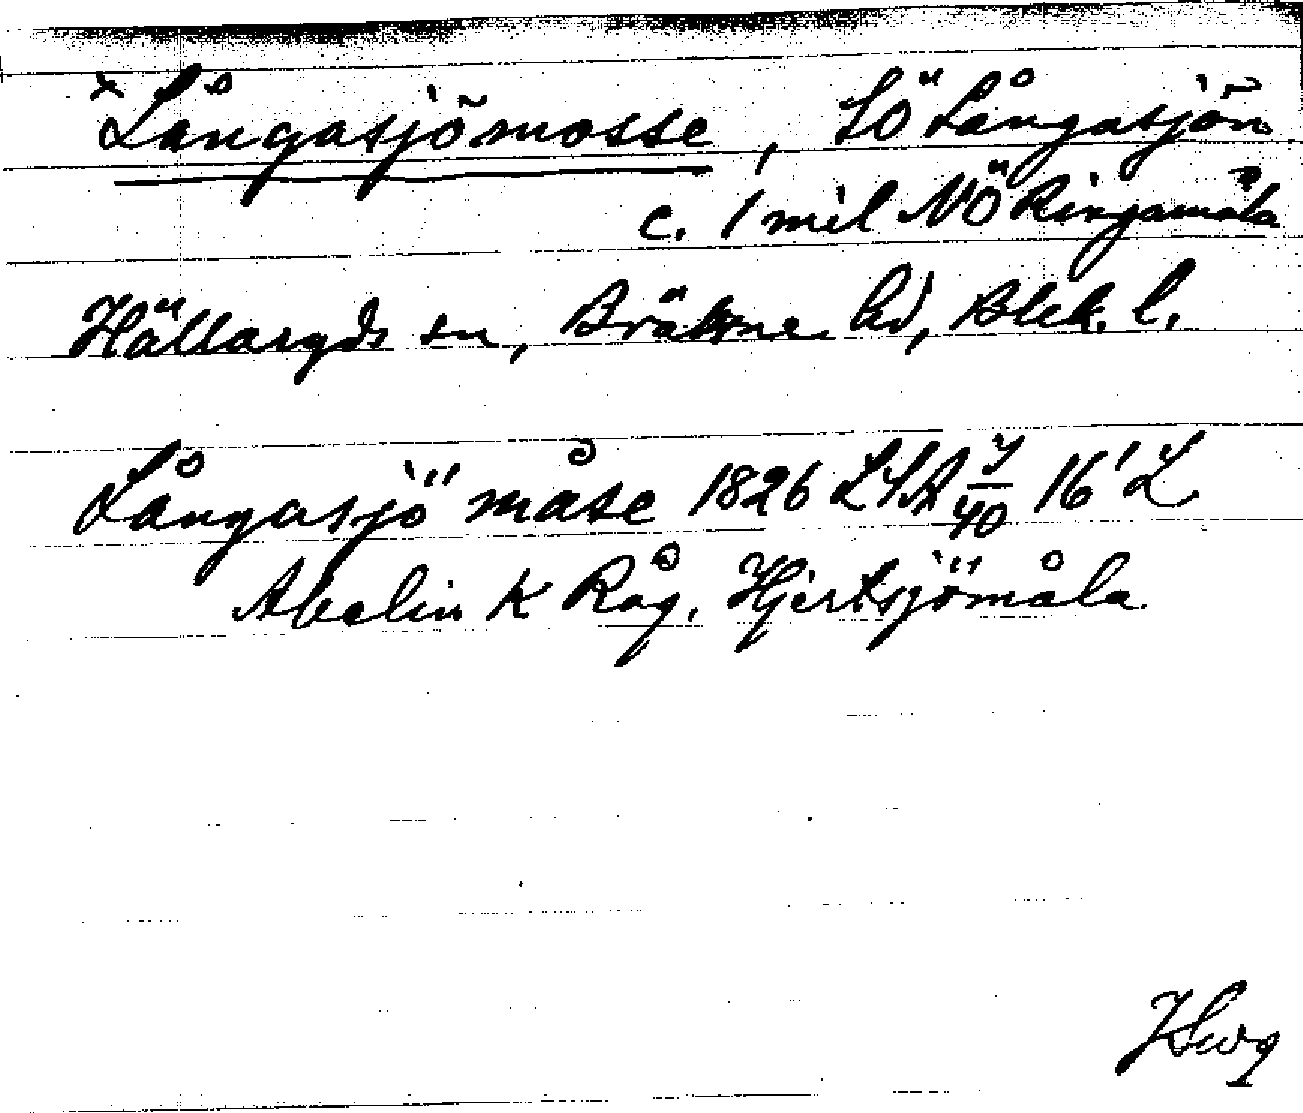 x Långasjömosse, SÖ Långasjön
c. 1 mil NÖ Ringamåla
Hällaryds sn, Bräkne hd, Blek. l.
Långasjö måse 1826 LSA 7/40 16' L
Abelin K Råg. Hjertsjömåla